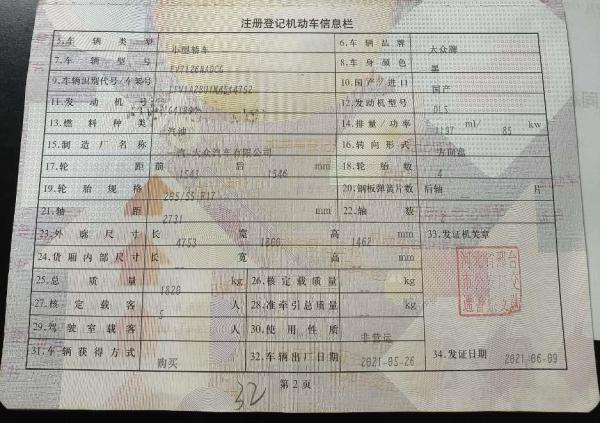 注册登记机动车信息栏
5.车辆类型 小型轿车 6.车辆品牌 大众牌
7.车辆型号 FV7126HADCG 8.车身颜色 黑
9.车辆识别代号/车架号 10.国产/进口 国产
11.发动机号 12.发动机型号 DLS
13.燃料种类 汽油 14.排量/功率 1197 ml/ 85 kw
15.制造厂名称 一汽-大众汽车有限公司 16.转向形式 方向盘
17.轮距 前 1543 后 1546 mm 18.轮胎数 4
19.轮胎规格 205/55 R17 20.钢板弹簧片数 后轴 片
21.轴距 2731 mm 22.轴数 2
23.外廓尺寸 长 4753 宽 1800 高 1462 mm 33.发证机关章
24.货厢内部尺寸 长 宽 高 mm
25.总质量 1820 kg 26.核定载质量 kg
27.核定载客 5 人 28.准牵引总质量 kg
29.驾驶室载客 人 30.使用性质 非营运
31.车辆获得方式 购买 32.车辆出厂日期 2021-05-26 34.发证日期 2021-06-09
第2页
32